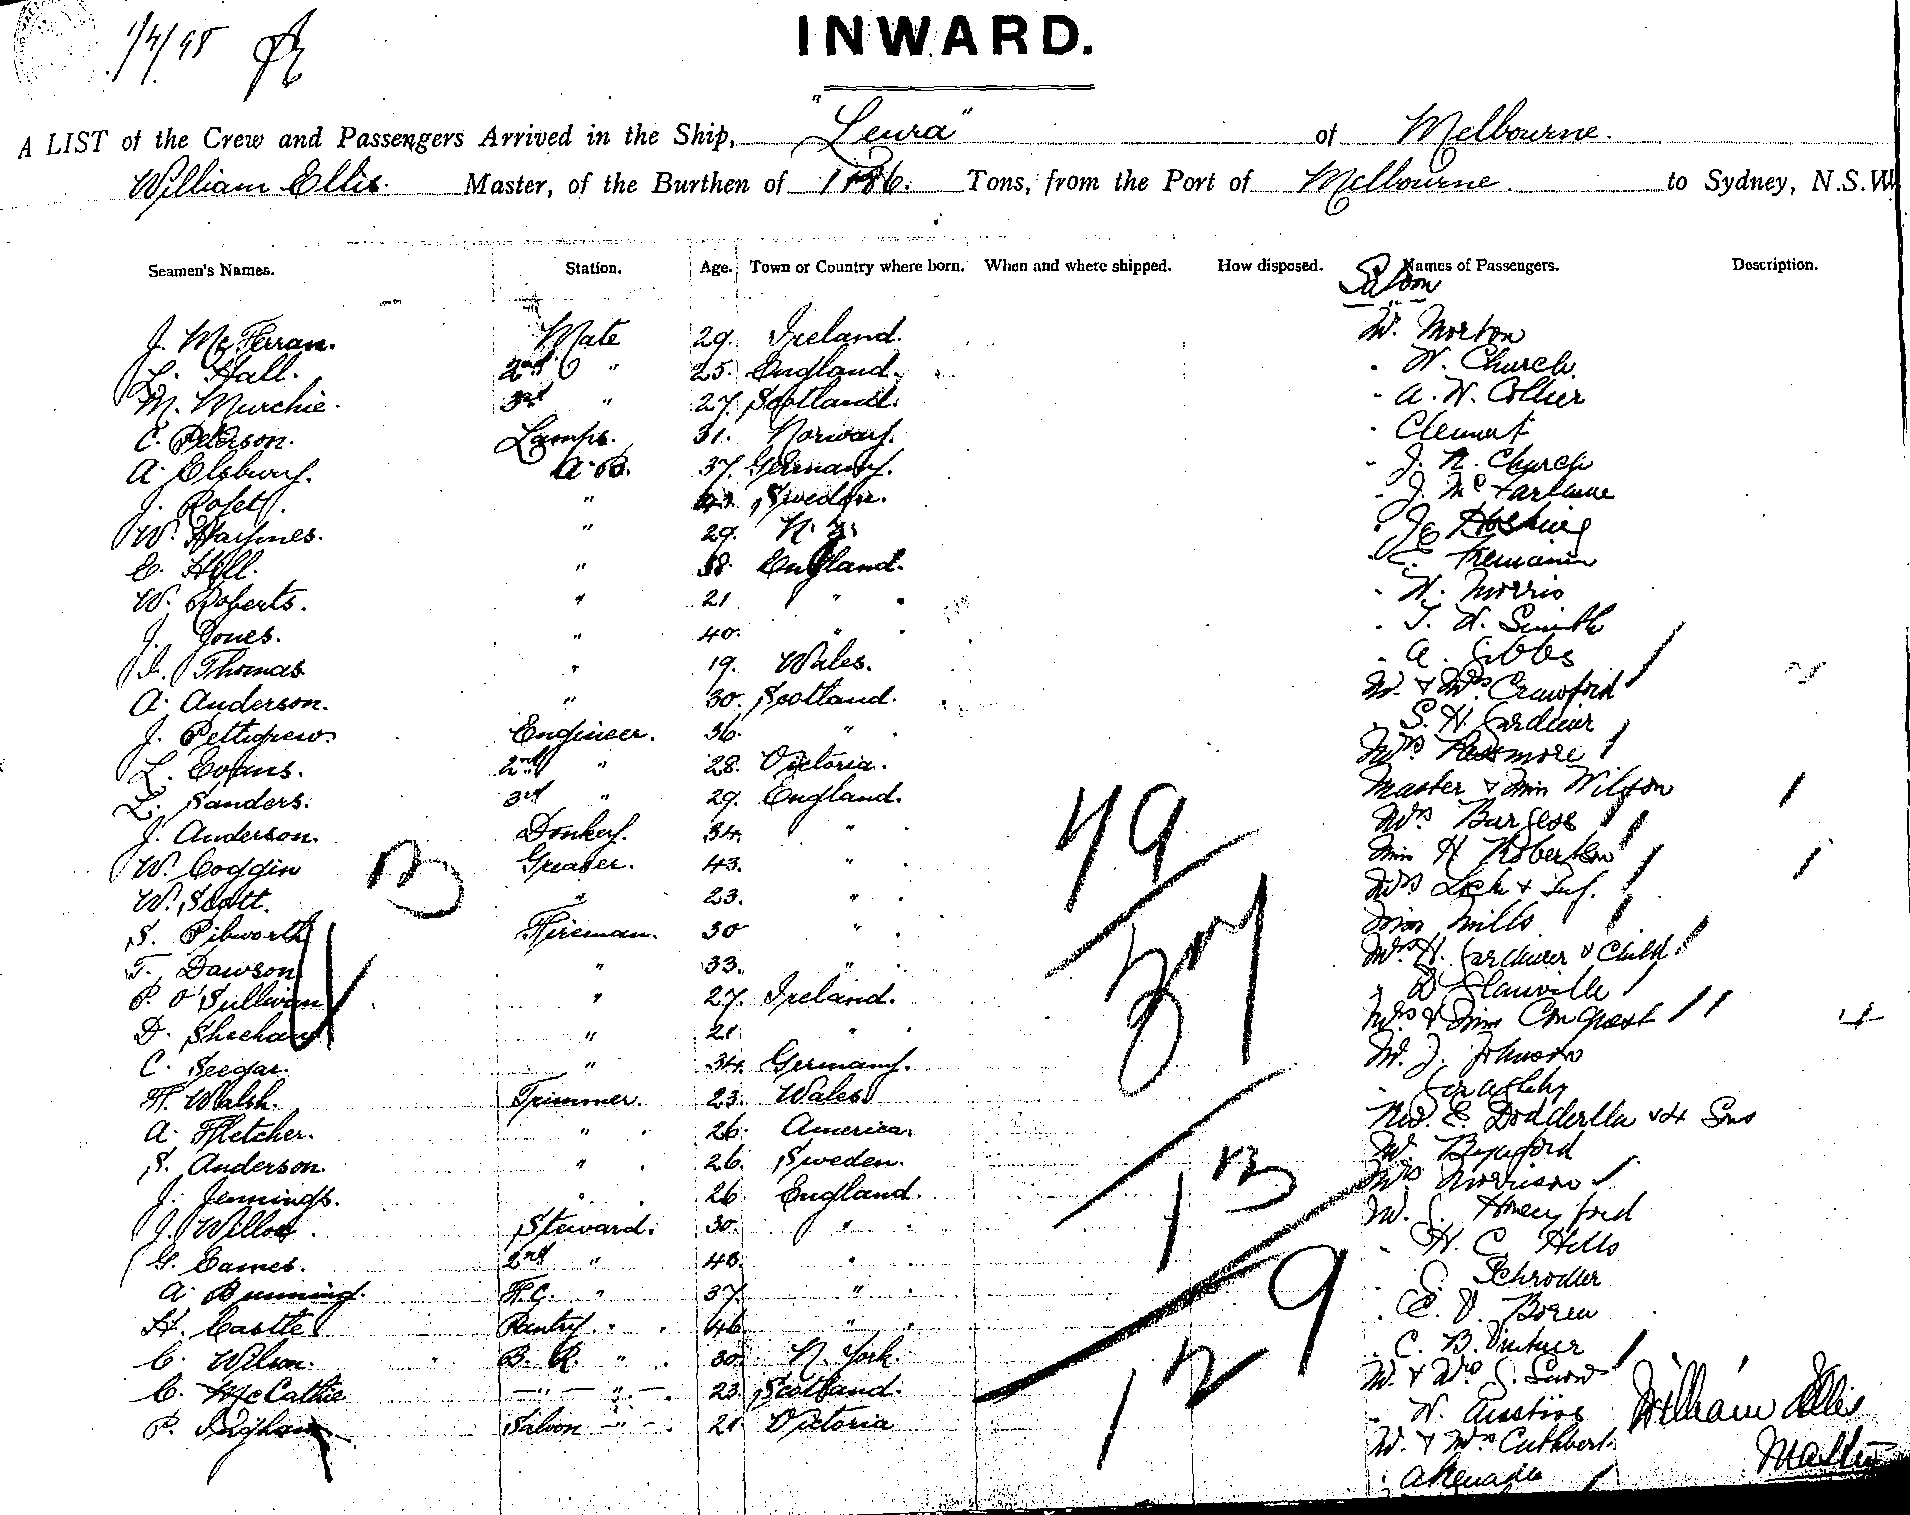 1/4/98
INWARD.
A LIST of the Crew and Passengers Arrived in the Ship, "Leura" of Melbourne.
William Ellis. Master, of the Burthen of 1186. Tons, from the Port of Melbourne. to Sydney, N.S.W.
Seamen's Names. Station. Age. Town or Country where born. When and where shipped. How disposed. Names of Passengers. Description.
Saloon
J. McFerran. Mate 29. Ireland. Mr. Morton
L. Hall. 2nd " 25. England. - W. Church.
M. Murchie. 3rd " 27. Scotland. - A. W. Collier
C. Peterson. Lamps. 31. Norway. - Clement
A. Elsbury. A.B. 37. Germany. - J. N. Church
J. " 43. Sweden. - J. McFarlane
W. Haynes. " 29. N.Z. - Hosking
E. Hill. " 38. England. -
W. Roberts. " 21 " - W. Morris
J. Jones. " 40. " - T. W. Smith
D. Thomas " 19. Wales. - A. Gibbs
A. Anderson. " 30. Scotland. Mr. & Mrs. Crawford
J. Pettigrew. Engineer. 36. " S. H. Gardiner
L. Evans. 2nd " 28. Victoria. Mrs Passmore
L. Sanders. 3rd " 29. England. Master & Miss Wilson
J. Anderson. Donkey. 34. " Mrs Burgess
W. Coggin Greaser. 43. " Miss H Roberton
W. Scott. " 23. " Mrs & Inf.
S. Pibworth Fireman. 30 " Miss Mills
T. Dawson " 33. " Mrs H. Gardiner & Child
P. O'Sullivan " 27. Ireland. Glanville
D. Sheehan " 21. " Mrs & Miss Conquest
C. Seegar. " 34. Germany. Mr. J. Johnson
H. Walsh. Trimmer. 23. Wales. - Geraghty
A. Fletcher. " 26. America. E. & 4 Sons
S. Anderson. " 26. Sweden. Mr. Bynford
J. Jennings. " 26. England. Mrs Morrison
J. Steward. 30. " Mr. G. Honeyford
G. Eames. 2nd " 40. " - H. C. Hills
A. Bunning. F.C. " 37. " -
H. Castle Pantry. " 46. " - E. V.
C. Wilson. B. R. " 30. N. York. - C. B.
C. McCathie " 23. Scotland. Mr. & Mrs. G. Snow
P. Saloon " 21. Victoria - W.
Mr. & Mrs Cuthbert
79
37
13
129
13
4
William Ellis
Master